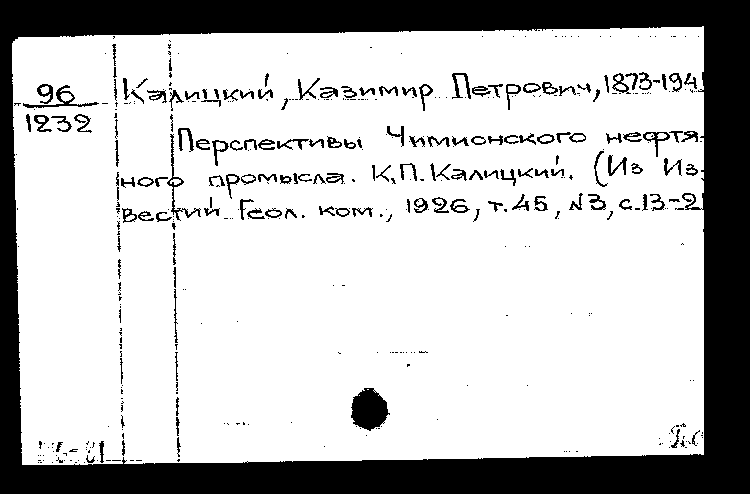 96
1232
Калицкий, Казимир Петрович, 1873-194
Перспективы Чимионского нефтя-
ного промысла. К.П. Калицкий. (Из Из-
вестий Геол. ком., 1926, т.45, №3, с.13-2